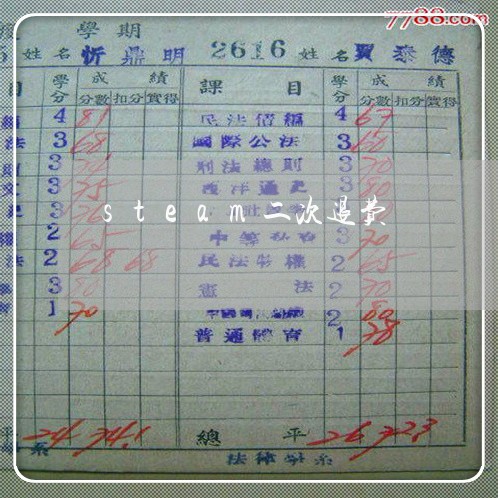 7788.com
學期
姓名 忻鼎明 2616 姓名 賈泰德
目 學分 成績 課目 學分 成績
分數 扣分 實得 分數 扣分 實得
4 81 民法債編 4 67
法 3 68 國際公法 3 60
3 刑法總則 3 70
3 75 西洋通史 3 80
steam二次退費
權 2 65 3 70
法 2 68 68 民法物權 2 65
3 80 憲法 2 70
1 70 2 80
普通體育 1 78
平 24 74.1 總平 26 72.3
系 法律學系